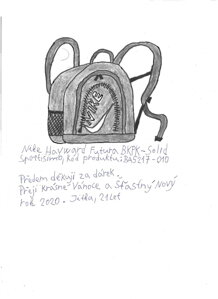 NIKE
Nike Hayward Futura BKPK-Solid
Sportisimo, kód produktu: BA5217-010
Předem děkuji za dárek.
Přeji krásné Vánoce a Šťastný Nový
rok 2020. Jitka, 21 let